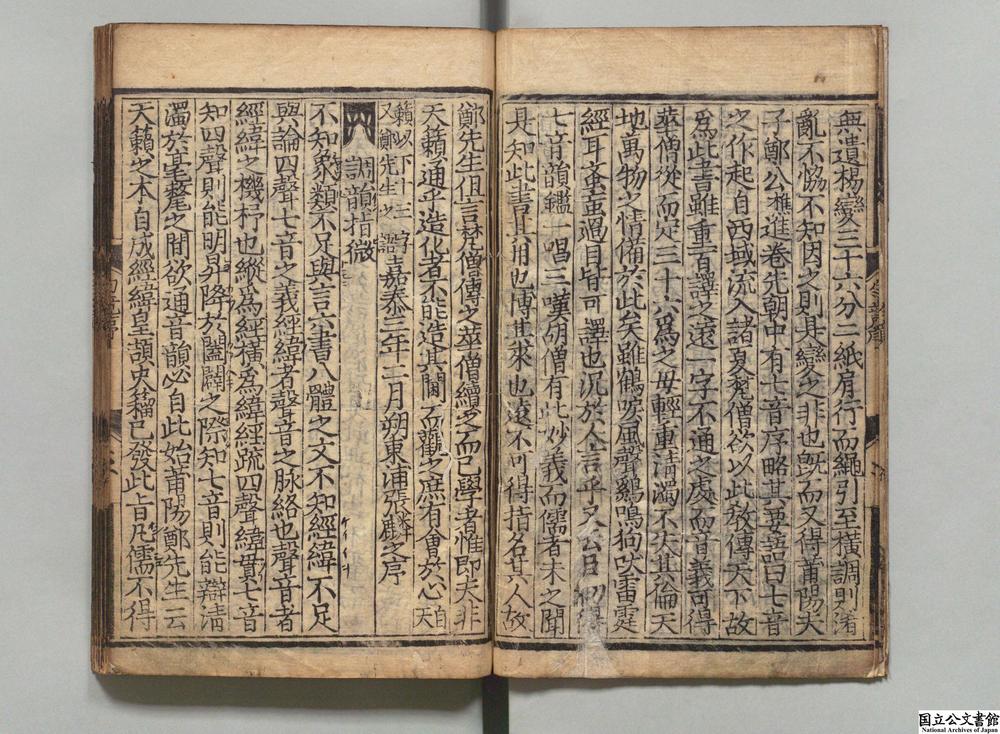 無遺楊變三十六分二紙肩行而繩引至横調則淆
亂不恊不知因之則是變之非也既而又得莆陽夫
子鄭公樵進卷先朝中有七音序略其要語曰七音
之作起自西域流入諸夏梵僧欲以此敎傳天下故
爲此書雖重百譯之遠一字不通之處而音義可得
華僧從而定三十六爲之母輕重清濁不失其倫天
地萬物之情備於此矣雖鶴唳風聲鷄鳴狗吠雷霆
經耳蚉䖟過目皆可譯也况於人言乎又公曰初得
七音韻鑑一唱三嘆胡僧有此妙義而儒者未之聞
是知此書其用也博其來也遠不可得指名其人故
鄭先生但言梵僧傳之華僧續之而已學者惟即夫非
天籟通乎造化者不能造其閫而觀之庶有會於心自天
籟以下十三字
又鄭先生之語
嘉泰三年二月朔東浦張麟之序
調韻指微
不知象類不足與言六書八體之文不知經緯不足
與論四聲七音之義經緯者聲音之脉絡也聲音者
經緯之機杼也縱爲經横爲緯經疏四聲緯貫七音
知四聲則能明昇降於闔闢之際知七音則能辯清
濁於毫釐之間欲通音韻必自此始莆陽鄭先生云
天籟之本自成經緯皇頡史籀已發此旨凡儒不得
国立公文書館
National Archives of Japan